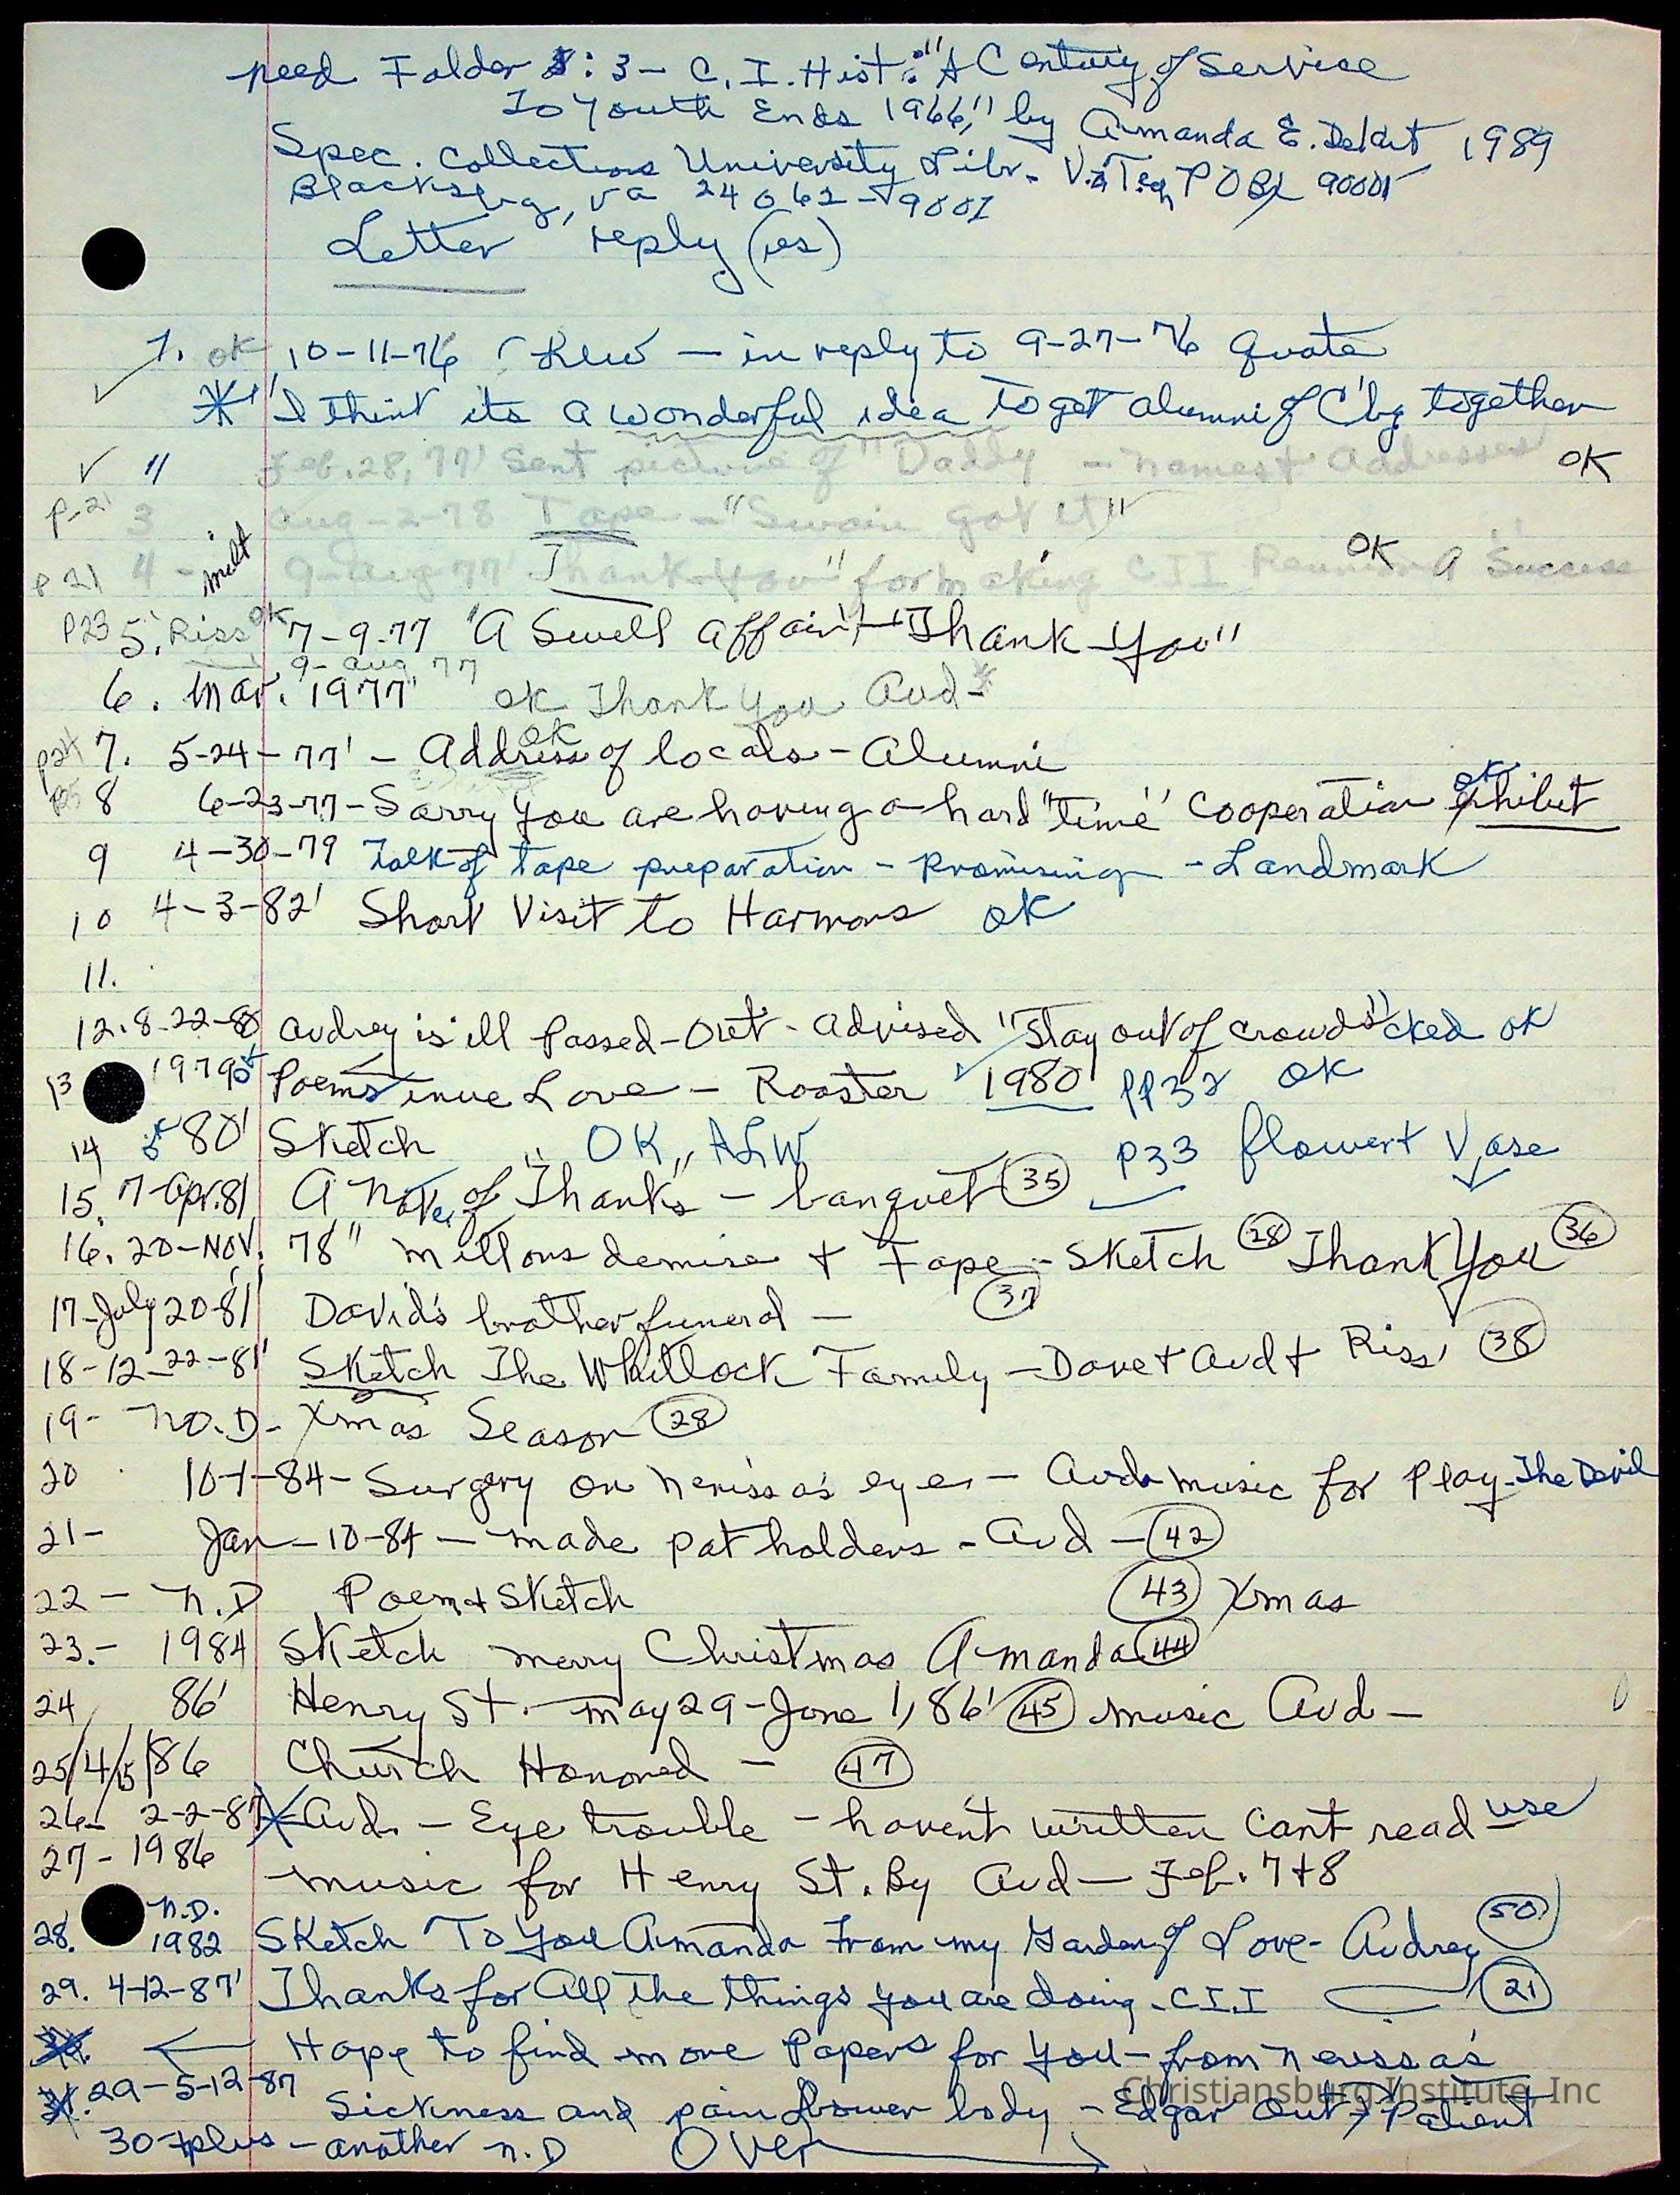 need Folder : 3 - C.I. Hist: "A Century of Service
To Youth Ends 1966," by Amanda E. DeHart 1989
Spec. Collections University Libr. Va Tech P O Bx 90001
Blacksbg, Va 24062-9001
Letter reply (ies)
1. OK 10-11-76 - in reply to 9-27-76 Quote
* "I think its a wonderful idea to get alumni of C'bg together
" Feb. 28, 77' Sent picture of "Daddy - names + Addresses OK
p-21 3 Aug-2-78 Tape - "Swain got it"
p 21 4 - milt 9-Aug 77' Thank-You" for making CII Reunion A Success OK
P23 5. Riss OK 7-9-77 "A Swell affair" - "Thank-You"
9-aug 77
6. Mar. 1977' OK Thank You Aud-*
p24 7. 5-24-77' - Address of locals - Alumni OK
p25 8 6-23-77 - Sorry you are having a hard "time" Cooperation Exhibit OK
9 4-30-79 Talk of tape preparation - Promising - Landmark
10 4-3-82' Short Visit to Harmons OK
11.
12. 8-22-80 Audrey is ill Passed-Out - Advised "Stay out of crowds" cked OK
13 1979 OK Poems Love - Rooster 1980 pp32 OK
14 OK 80' Sketch " OK " ALW p33 flower + Vase
15. 7-Apr. 81 A Note of Thanks - banquet 35
16. 20-Nov. 78" Miltons demise + Tape - Sketch 28 Thank You 36
17-July 20-81' David's brother funeral - 37
18-12-22-81' Sketch The Whitlock Family - Dave + Aud + Riss' 38
19- No. D- Xmas Season 28
20 10-1-84 - Surgery on Nerissa's eyes - Auds music for Play - The Devil
21- Jan-10-84 - made pot holders - Aud - 42
22- N.D Poem + Sketch 43 Xmas
23.- 1984 Sketch Merry Christmas Amanda 44
24 86' Henry St. - May 29-June 1, 86' 45 Music Aud -
25/4/15/86 Church Honored - 47
26- 2-2-87 * Aud. - Eye trouble - haven't written Cant read - use
27- 1986 music for Henry St. By Aud - Feb. 7 + 8
28. N.D. 1982 Sketch To You Amanda From my Garden of Love - Audrey 50
29. 4-12-87' Thanks for All the things you are doing - C.I.I 21
Hope to find more Papers for you - from Nerissa's
29-5-12-87 Sickness and pain lower body - Edgar Out Patient
30 plus - another N.D Over
Christiansburg Institute, Inc